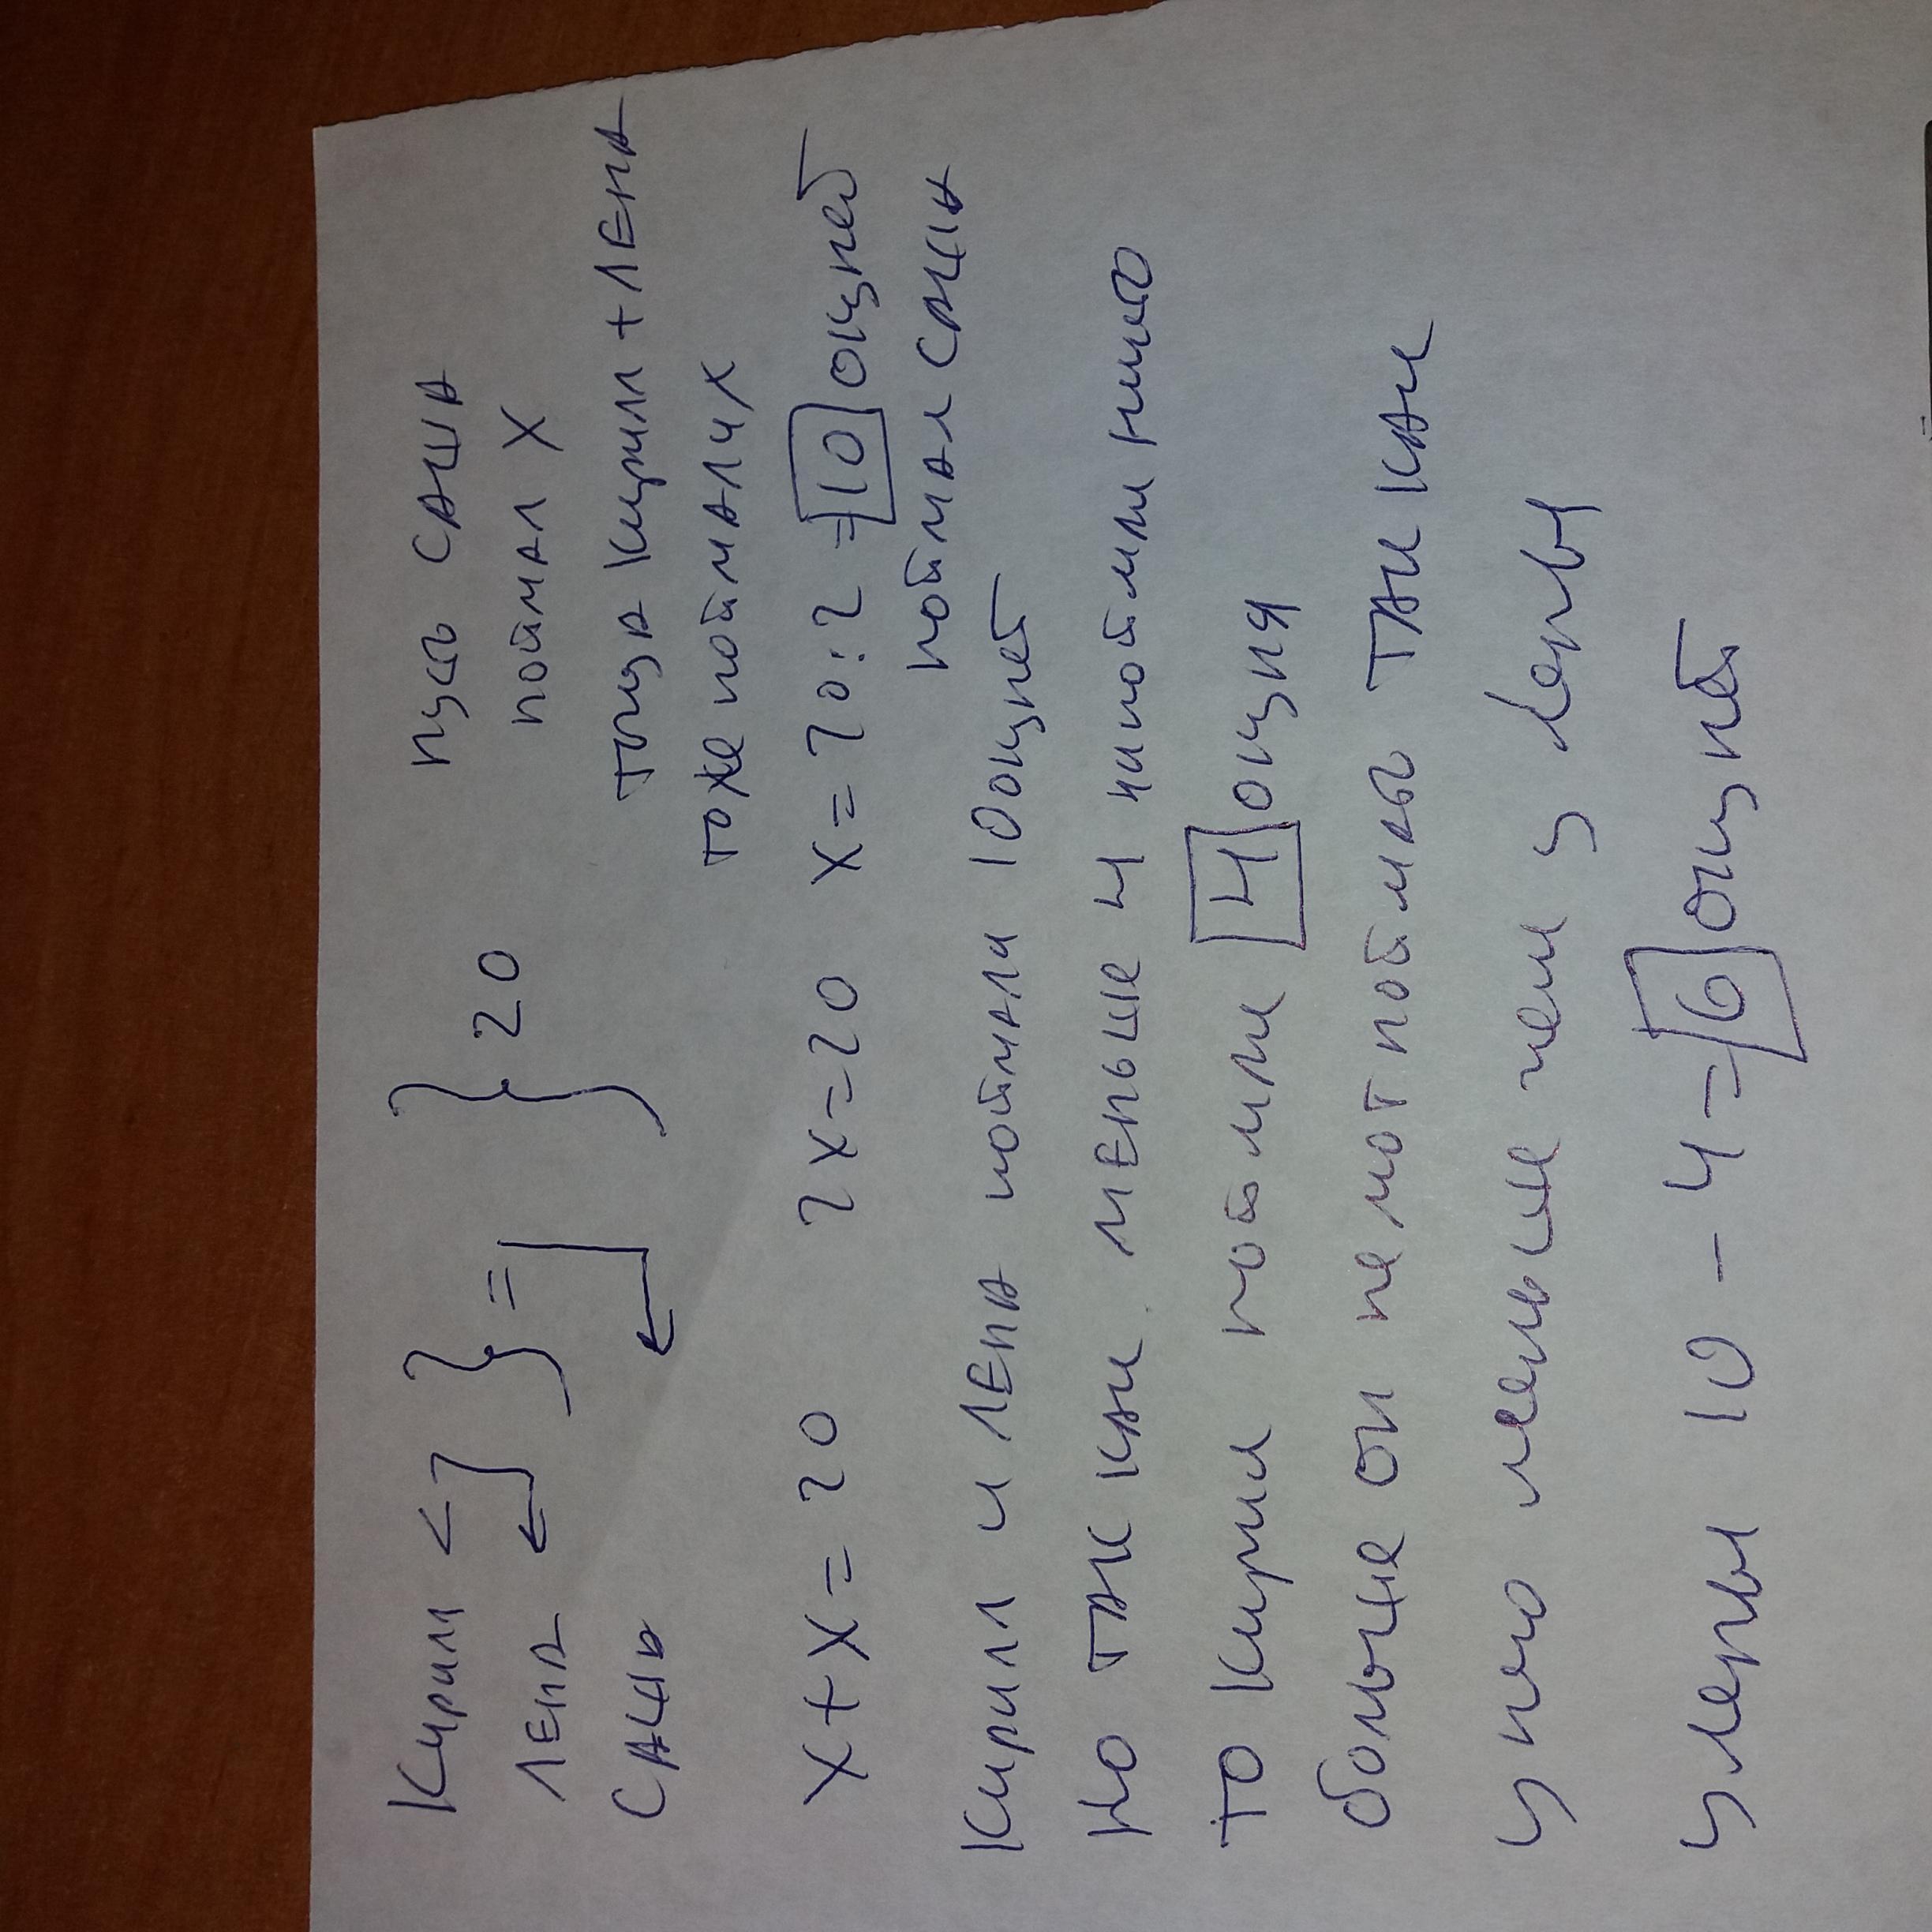 Кирилл <
Лена } = } 20
Саша
пусть Саша
поймал X
тогда Кирилл + Лена
тоже поймали X
X + X = 20 2X = 20 X = 20 : 2 = 10 окуней
поймал Саша
Кирилл и Лена поймали 10 окуней
Но так как меньше 4 никто
то Кирилл поймал 4 окуня
больше он не мог поймать так как
у него меньше чем у Лены
у Лены 10 - 4 = 6 окуней